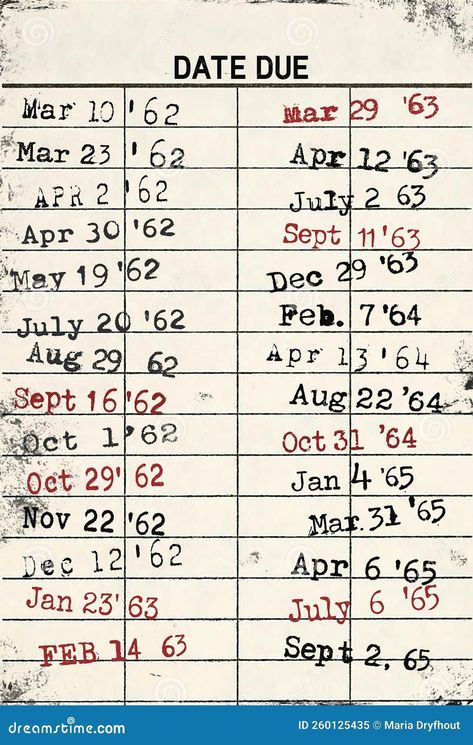 DATE DUE
Mar 10 '62
Mar 23 '62
APR 2 '62
Apr 30 '62
May 19 '62
July 20 '62
Aug 29 62
Sept 16 '62
Oct 1 '62
Oct 29' 62
Nov 22 '62
Dec 12 '62
Jan 23' 63
FEB 14 63
Mar 29 '63
Apr 12 '63
July 2 63
Sept 11 '63
Dec 29 '63
Feb. 7 '64
Apr 13 '64
Aug 22 '64
Oct 31 '64
Jan 4 '65
Mar 31 '65
Apr 6 '65
July 6 '65
Sept 2, 65
dreamstime.com
ID 260125435 © Maria Dryfhout